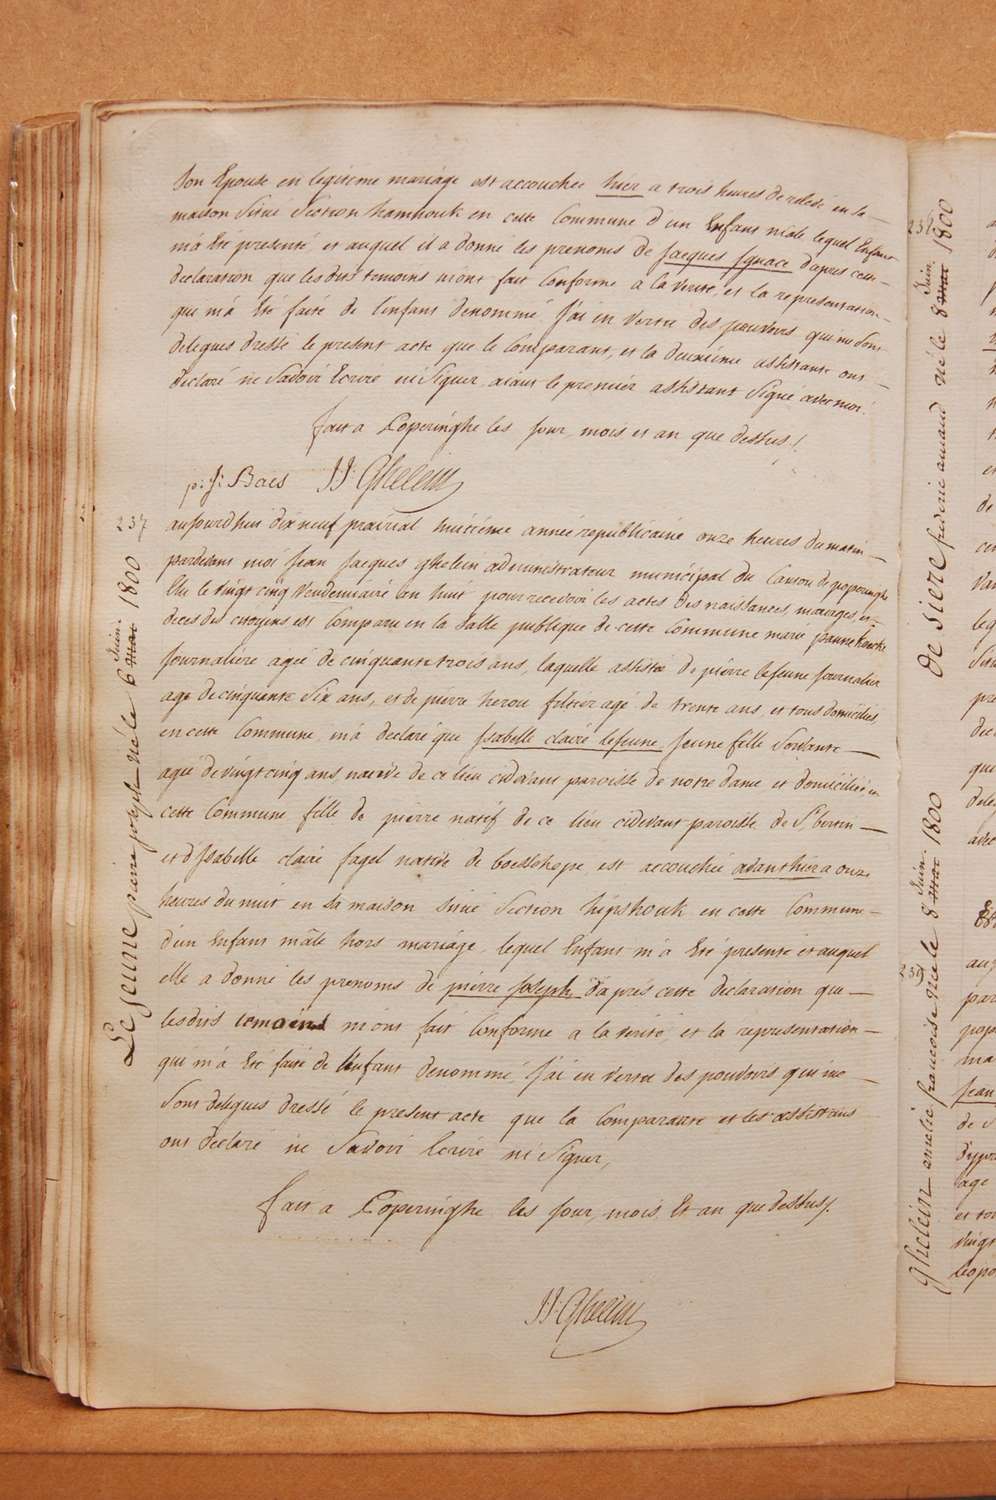 son Epouse en legiteme mariage est accouchée hier a trois heures de relevé en sa
maison Situé Section hamhouk en cette Commune d'un Enfant mâle lequel Enfant
m'a Eté presenté et auquel il a donné les prenoms de Jacques Ignace d'apres cette
declaration que les dits temoins m'ont fait Conforme a la verité, et la representation
qui m'a Eté faite de l'enfant denommé, J'ai en vertu des pouvoirs qui me sont
delegués dressé le present acte que le Comparant, et la deuxieme assistante ont
declaré ne Savoir Ecrire ni Signer, aiant le premier assistant Signé avec moi.
fait a Poperinghe les jour, mois et an que dessus /.
p: J: Baes JJ: Ghelein
237
aujourd'hui dix neuf prairial huitieme année republicaine onze heures du matin
pardevant moi Jean Jacques Ghelein administrateur municipal du Canton de poperinghe
Elu le vingt cinq Vendemiaire an huit pour recevoir les actes des naissances, mariages, et
deces des citoyens est Comparu en la Salle publique de cette Commune marie Jeanne
Journaliere agée de cinquante trois ans, laquelle assistée de pierre lejeune Journalier
agé de cinquante Six ans, et de pierre herou filtier agé de trente ans, et tous domiciliés
en cette Commune, m'a declaré que Isabelle claire lejeune, Jeune fille
agée de vingt cinq ans, native de ce lieu cidevant paroisse de notre dame et domiciliée en
cette Commune fille de pierre natif de ce lieu cidevant paroisse de St. bertin
et d'Isabelle claire fagel native de boesschepe est accouchée avanthier a onze
heures du nuit en sa maison Situé Section hipshouk en cette Commune
d'un Enfant mâle hors mariage, lequel Enfant m'a Eté presenté et auquel
elle a donné les prenoms de pierre Joseph d'apres cette declaration que
les dits temoins m'ont fait Conforme a la verité, et la representation
qui m'a Eté faite de l'Enfant denommé, J'ai en vertu des pouvoirs qui me
Sont delegués dressé le present acte que la Comparante et les assistans
ont declaré ne Savoir Ecrire ni Signer,
fait a Poperinghe les jour, mois Et an que dessus /.
JJ: Ghelein
LeJeune pierre joseph né le 6 mai Juin. 1800
236
De Siere frederic amand né le 8 mai Juin. 1800
238
Ghelein amelie francoise née le 8 mai Juin. 1800